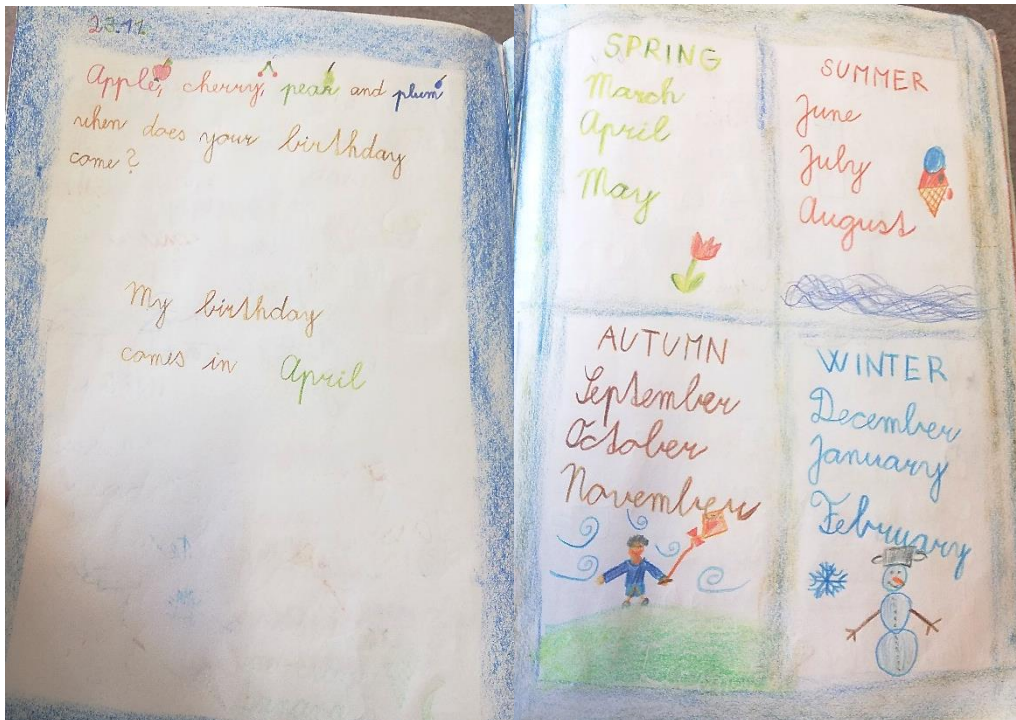 23.11.
Apple, cherry, pear and plum
when does your birthday
come?
My birthday
comes in April
SPRING
March
April
May
SUMMER
June
July
August
AUTUMN
September
October
November
WINTER
December
January
February